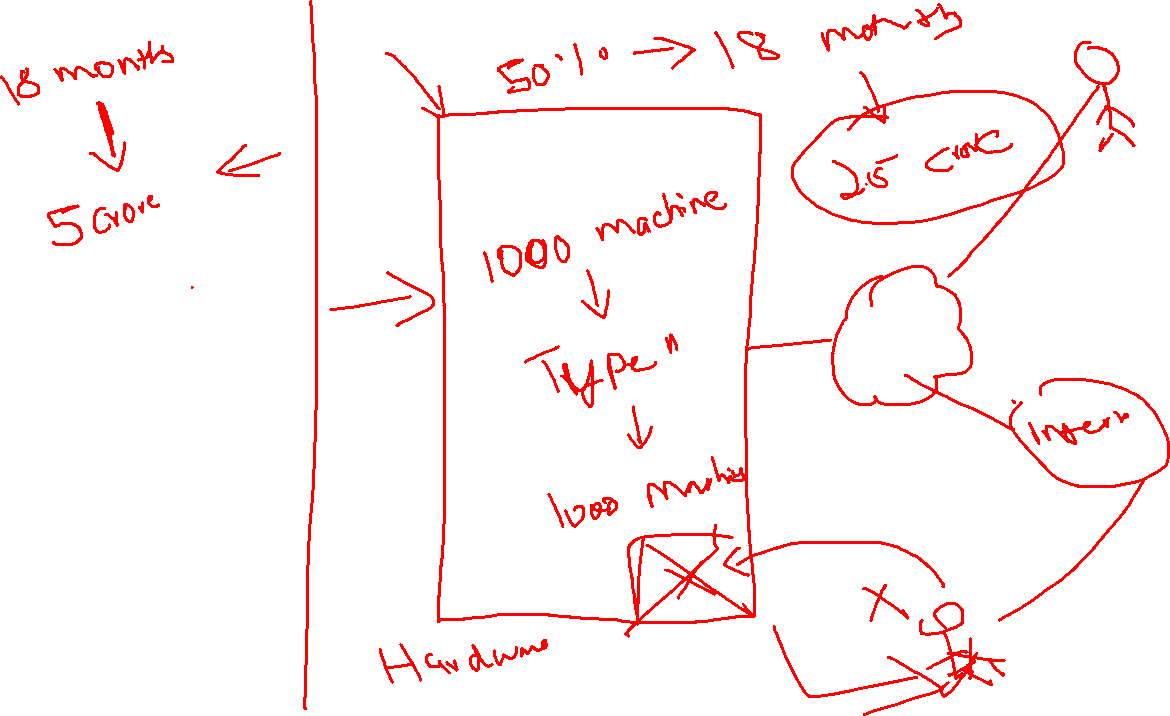 18 months
5 crore
50% → 18 months
2.5 crore
1000 machine
Type"
1000 machine
Hardware